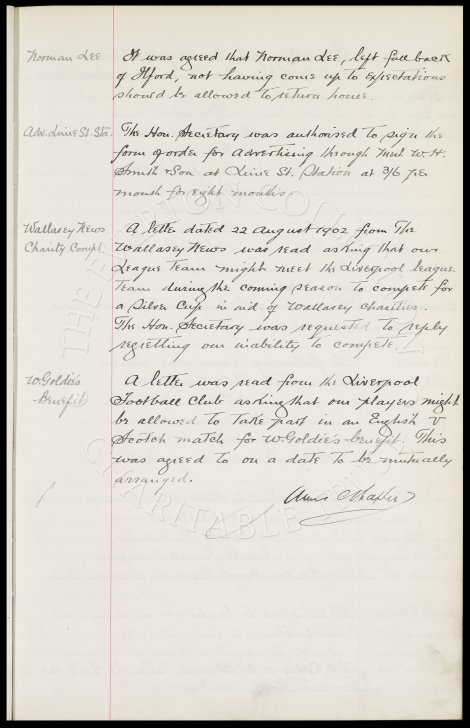 Norman Lee
It was agreed that Norman Lee, left full back
of Ilford, not having come up to expectations
should be allowed to return home.
Adv. Lime St. Sta.
The Hon. Secretary was authorised to sign the
form of order for Advertising through W. H.
Smith & Son at Lime St. Station at 3/6 per
month for eight months.
Wallasey News
Charity Compt.
A letter dated 22 August 1902 from The
Wallasey News was read asking that our
League Team might meet the Liverpool League
Team during the coming season to compete for
a Silver Cup in aid of Wallasey Charities.
The Hon. Secretary was requested to reply
regretting our inability to compete.
W. Goldie's
Benefit
A letter was read from the Liverpool
Football Club asking that our players might
be allowed to take part in an English V
Scotch match for W. Goldie's benefit. This
was agreed to on a date to be mutually
arranged.
THE EVERTON COLLECTION
CHARITABLE TRUST